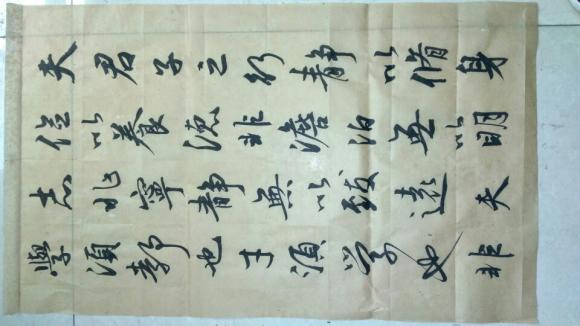 夫君子之行静以脩身
俭以養德非澹泊无以明
志非寧静無以致遠夫
學須静也才須学也非